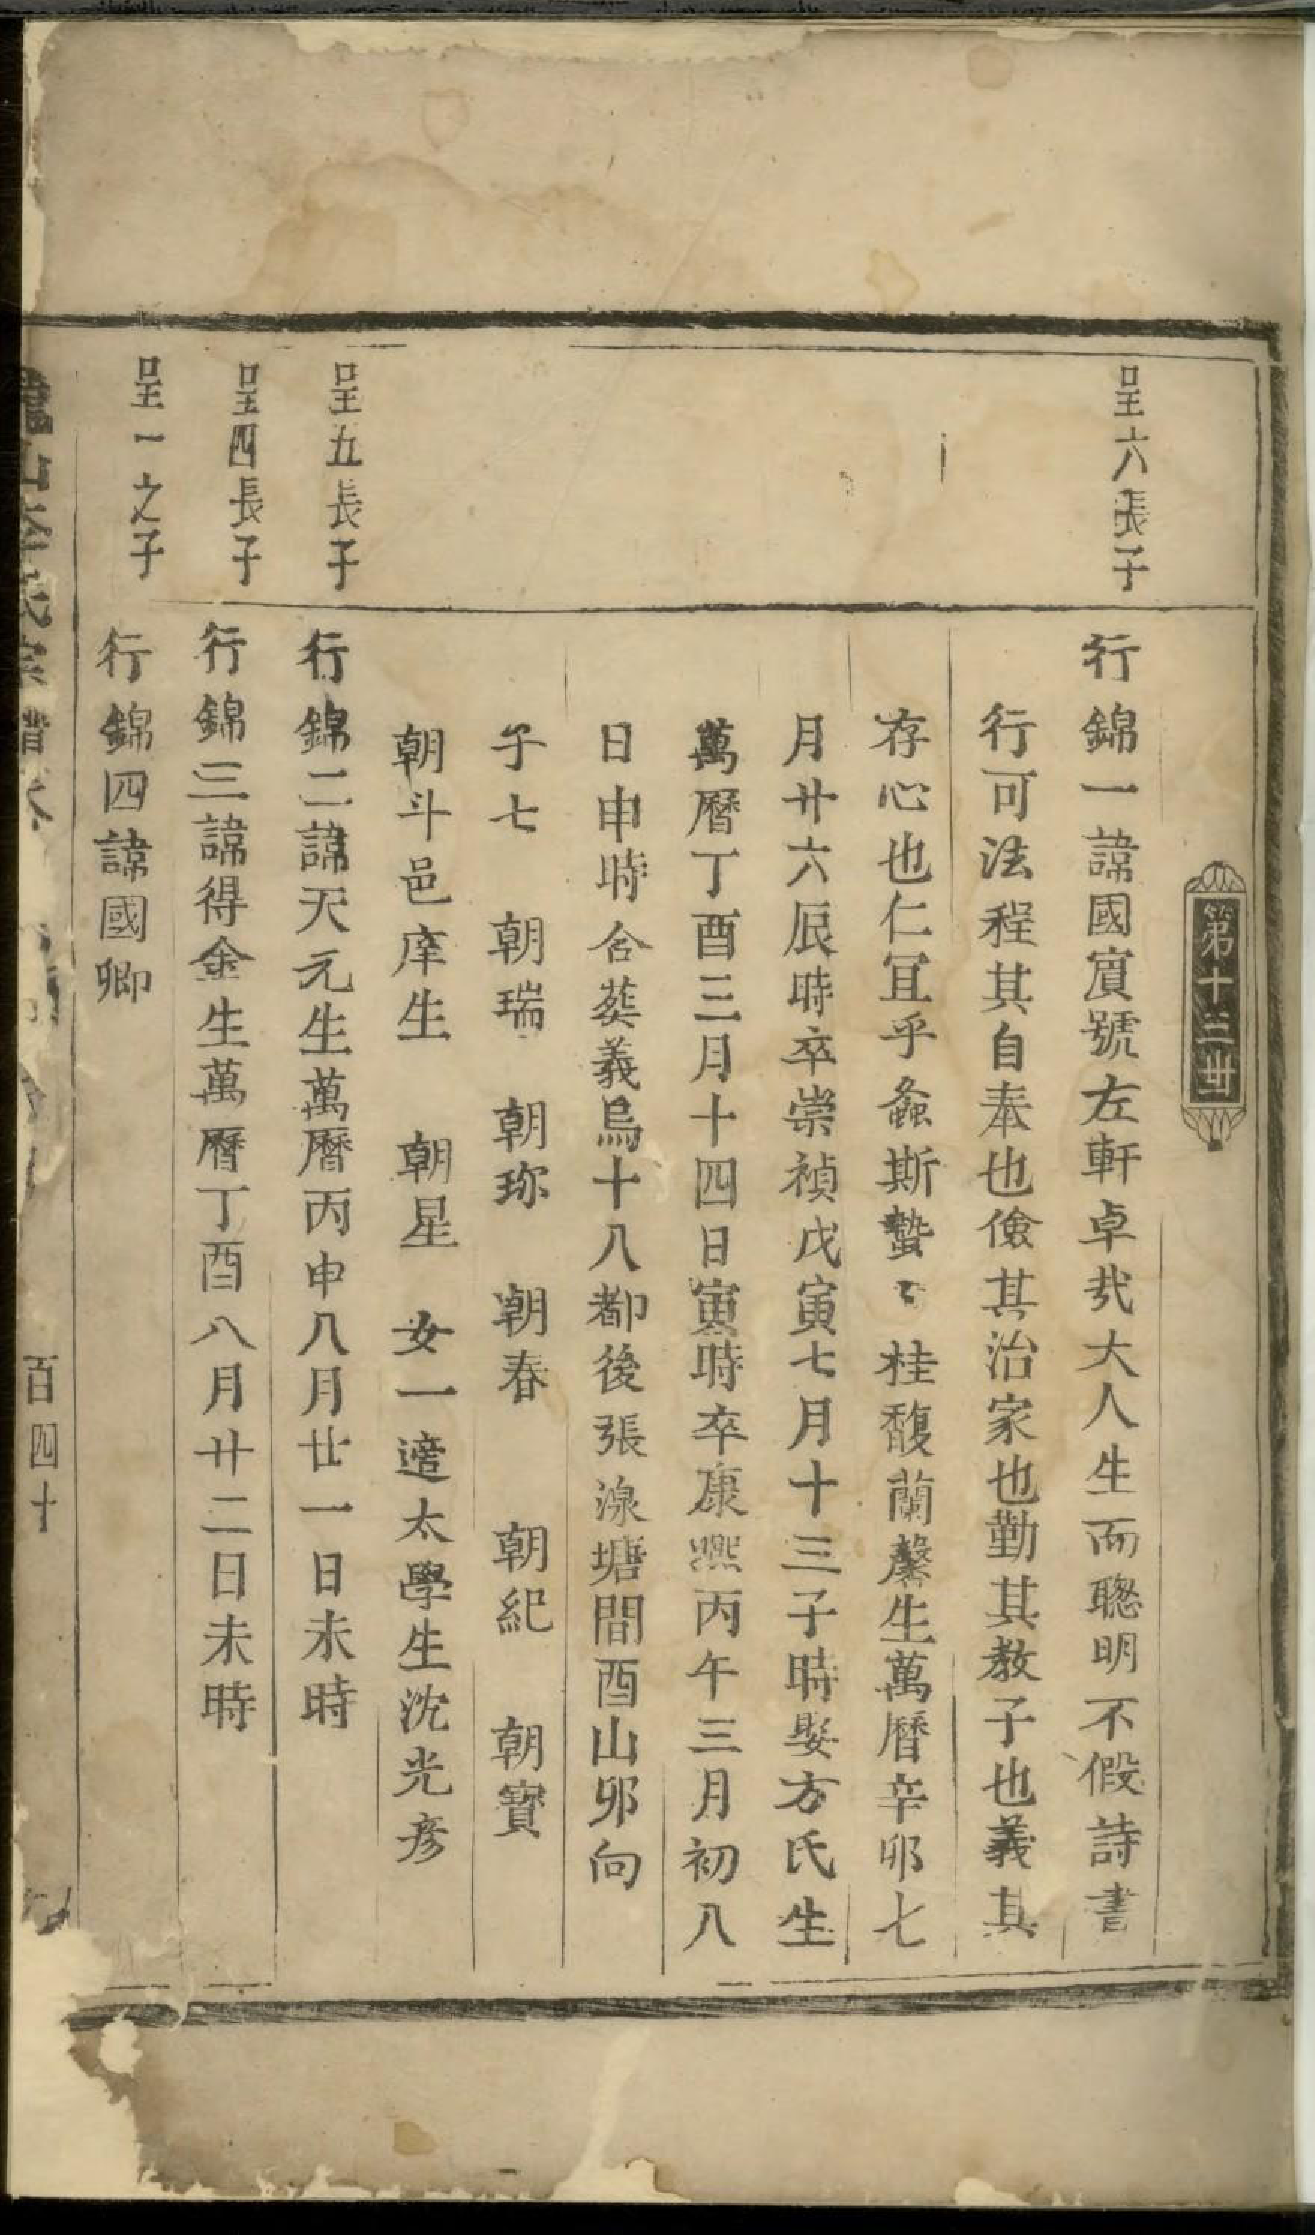 第十三世
呈六長子
行錦一諱國賔號左軒卓㢤大人生而聰明不假詩書
行可法程其自奉也儉其治家也勤其教子也義其
存心也仁冝乎螽斯蟄〻桂馥蘭馨生萬曆辛卯七
月廿六辰時卒崇禎戊寅七月十三子時娶方氏生
萬曆丁酉三月十四日寅時卒康熈丙午三月初八
日申時合葬義烏十八都後張湶塘間酉山卯向
子七 朝瑞 朝珎 朝春 朝紀 朝寳
朝斗邑庠生 朝星 女一適太學生沈光彦
呈五長子
行錦二諱天元生萬曆丙申八月廿一日未時
呈四長子
行錦三諱得金生萬曆丁酉八月廿二日未時
呈一之子
行錦四諱國卿
山李氏宗譜
百四十